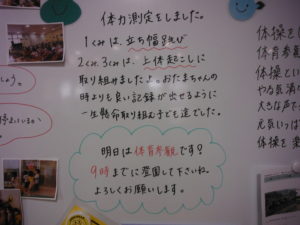 体力測定をしました。
1くみは、立ち幅跳び
2くみ、3くみは、上体起こしに
取り組みましたよ。おたまちゃんの
時よりも良い記録が出せるように
一生懸命取り組む子ども達でした。
明日は体育参観です?
9時までに登園して下さいね。
よろしくお願いします。
しょう。
体操を
体育参観
体操と
やる気満
大きな声で
元気いっぱ
体操を楽